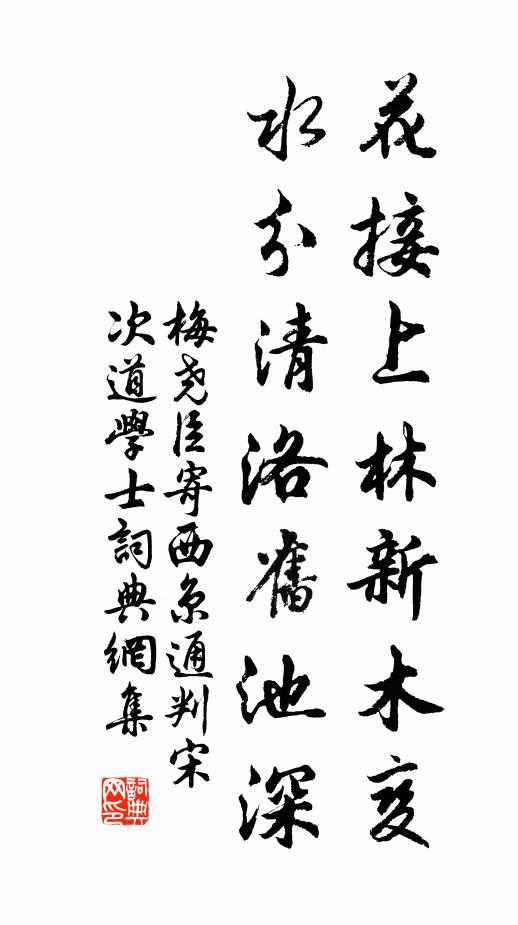 花接上林新木变
水分清洛舊池深
梅尧臣寄西京通判宋
次道學士詞典網集
詞典
网印